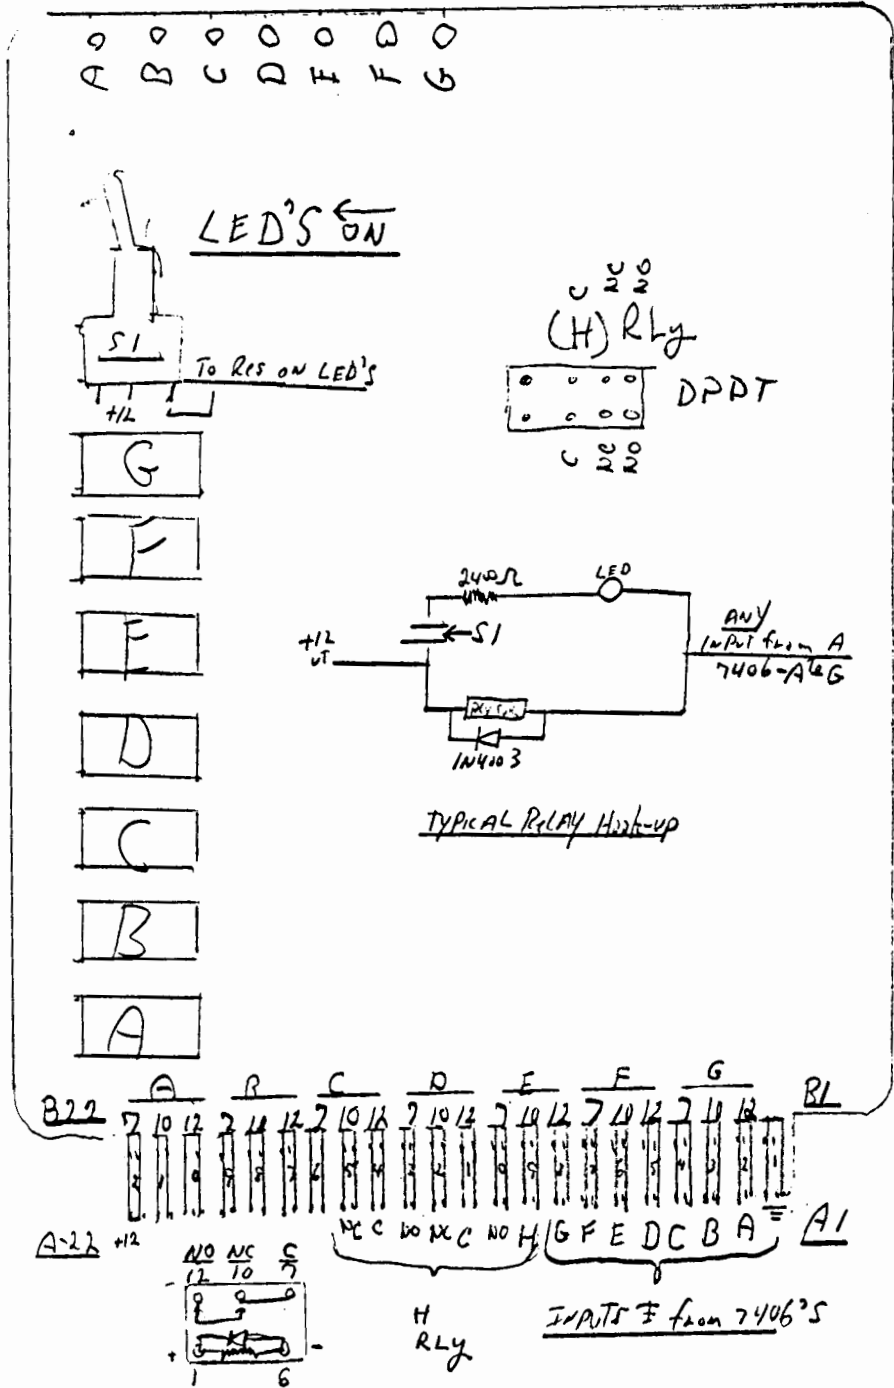 A B C D E F G
LED'S ON
S1
TO RES ON LED'S
+12
C NC NO
(H) RLy
DPDT
C NC NO
G
F
E
D
C
B
A
240Ω
LED
S1
+12
ANY
INPUT from A
7406-A to G
1N4003
TYPICAL RELAY Hook-up
A B C D E F G
B22
B1
7 10 12 7 10 12 7 10 12 7 10 12 7 10 12 7 10 12 7 10 12
NC C NO NC C NO H G F E D C B A
A-22
+12
A1
NO NC C
12 10 7
+ -
1 6
H
RLy
INPUTS from 7406'S